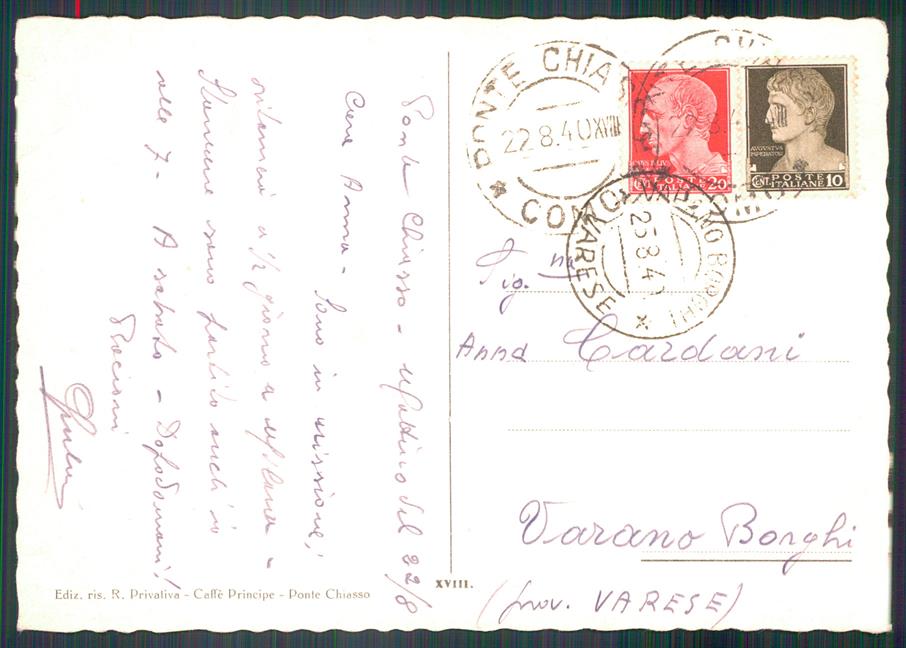 Ponte Chiasso - Mattino del 22/8
Cara Anna - Sono in missione,
ritornerò a 1/2 giorno a Milano -
Stamane sono partito anch'io
alle 7 - A sabato - Dopodomani!
Bacioni
PONTE CHIASSO
22.8.40 XVIII
* COMO
CENT. POSTE ITALIANE 20
AUGVSTVS
IMPERATOR
CENT. POSTE ITALIANE 10
VARANO BORGHI
25.8.40
* VARESE
Sig.na
Anna Cardani
Varano Borghi
(prov. VARESE)
XVIII.
Ediz. ris. R. Privativa - Caffè Principe - Ponte Chiasso